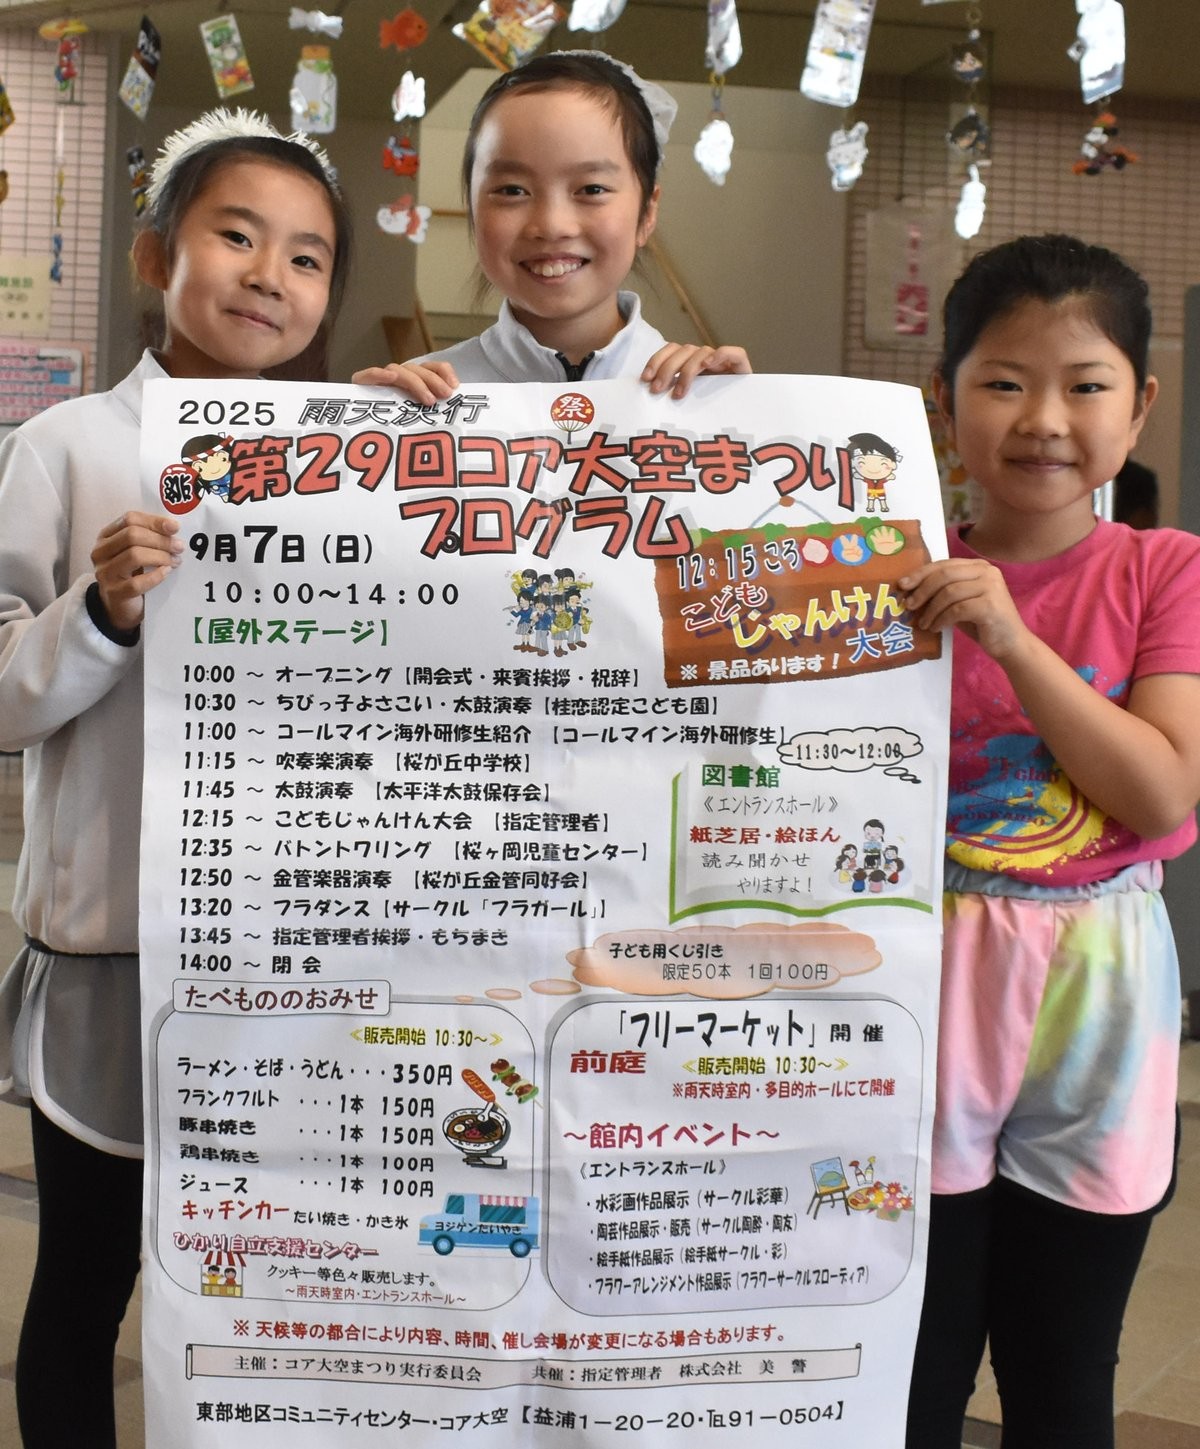 2025 雨天決行
祭
第29回コア大空まつり
プログラム
9月7日(日)
10:00~14:00
12:15ころ
こども
じゃんけん
大会
※ 景品あります!
【屋外ステージ】
10:00 ~ オープニング【開会式・来賓挨拶・祝辞】
10:30 ~ ちびっ子よさこい・太鼓演奏【桂恋認定こども園】
11:00 ~ コールマイン海外研修生紹介 【コールマイン海外研修生】
11:15 ~ 吹奏楽演奏 【桜が丘中学校】
11:45 ~ 太鼓演奏 【太平洋太鼓保存会】
12:15 ~ こどもじゃんけん大会 【指定管理者】
12:35 ~ バトントワリング 【桜ヶ岡児童センター】
12:50 ~ 金管楽器演奏 【桜が丘金管同好会】
13:20 ~ フラダンス【サークル「フラガール」】
13:45 ~ 指定管理者挨拶・もちまき
14:00 ~ 閉会
11:30~12:00
図書館
《エントランスホール》
紙芝居・絵ほん
読み聞かせ
やりますよ!
子ども用くじ引き
限定50本 1回100円
たべもののおみせ
≪販売開始 10:30~≫
ラーメン・そば・うどん・・・350円
フランクフルト ・・・1本 150円
豚串焼き ・・・1本 150円
鶏串焼き ・・・1本 100円
ジュース ・・・1本 100円
キッチンカー たい焼き・かき氷
ヨジゲンたいやき
ひかり自立支援センター
クッキー等色々販売します。
~雨天時室内・エントランスホール~
「フリーマーケット」開催
前庭 ≪販売開始 10:30~≫
※雨天時室内・多目的ホールにて開催
~館内イベント~
《エントランスホール》
・水彩画作品展示(サークル彩華)
・陶芸作品展示・販売(サークル陶酔・陶友)
・絵手紙作品展示(絵手紙サークル・彩)
・フラワーアレンジメント作品展示(フラワーサークルブローディア)
※ 天候等の都合により内容、時間、催し会場が変更になる場合もあります。
主催:コア大空まつり実行委員会 共催:指定管理者 株式会社 美警
東部地区コミュニティセンター・コア大空【益浦1-20-20・℡91-0504】